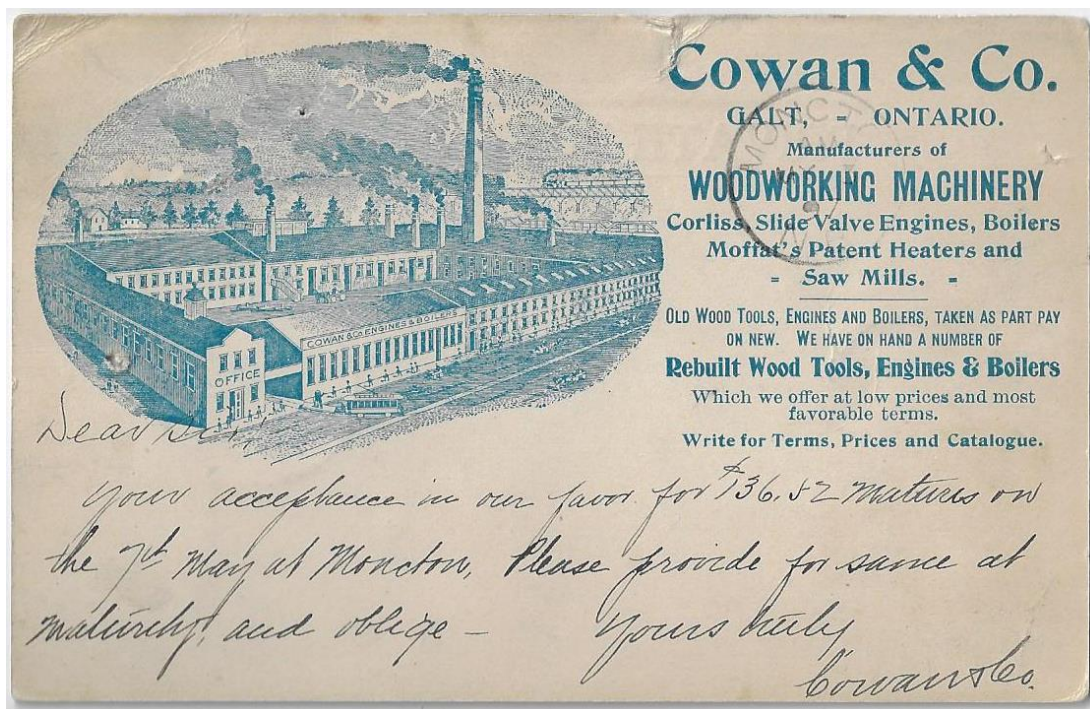 Cowan & Co.
GALT, - ONTARIO.
Manufacturers of
WOODWORKING MACHINERY
Corliss, Slide Valve Engines, Boilers
Moffat's Patent Heaters and
- Saw Mills. -
OLD WOOD TOOLS, ENGINES AND BOILERS, TAKEN AS PART PAY
ON NEW. WE HAVE ON HAND A NUMBER OF
Rebuilt Wood Tools, Engines & Boilers
Which we offer at low prices and most
favorable terms.
Write for Terms, Prices and Catalogue.
COWAN & CO ENGINES & BOILERS
OFFICE
MONCTO
Dear Sir,
Your acceptance in our favor for $136.52 matures on
the 7th May at Moncton, Please provide for same at
maturity, and oblige –
Yours truly
Cowan & Co.